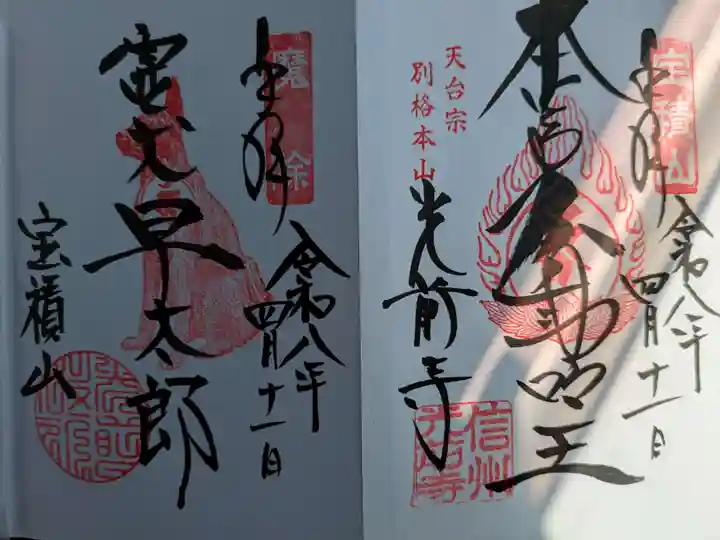 宝積山
奉拝
令和八年
四月十一日
本尊不動明王
天台宗
別格本山
光前寺
信州
光前寺
魔除
奉拝
令和八年
四月十一日
霊犬早太郎
宝積山